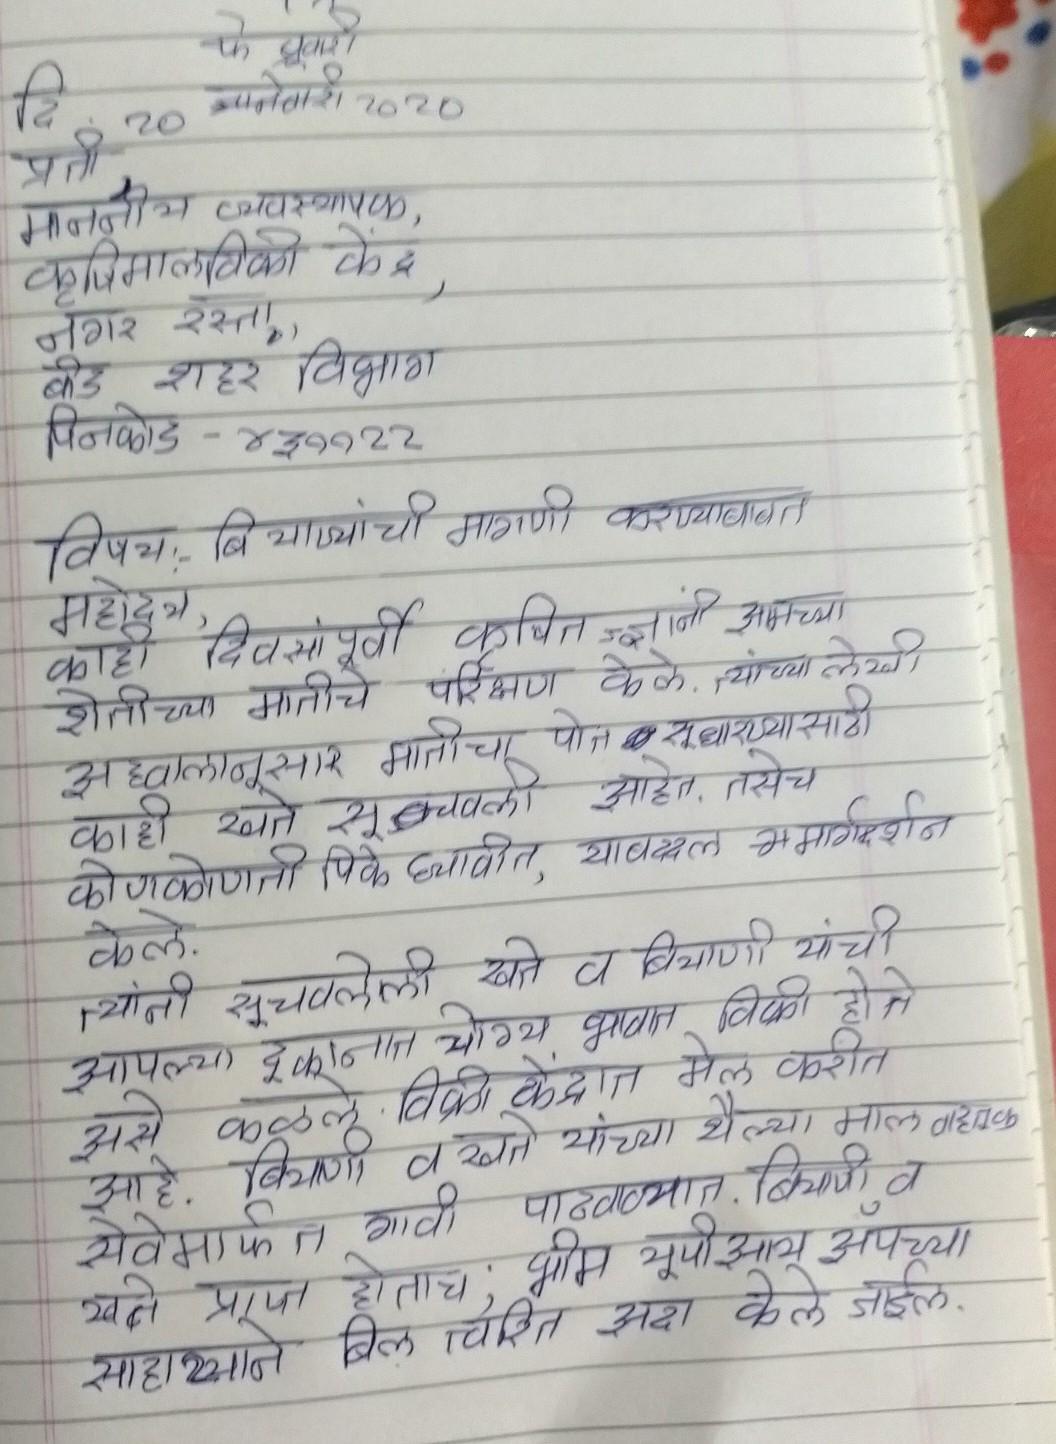 फेब्रुवारी
दि. २० जानेवारी २०२०
प्रती
माननीय व्यवस्थापक,
कृषिमालविक्री केंद्र,
नगर रस्ता,
बीड शहर विभाग
पिनकोड - ४३११२२
विषय:- बियाण्यांची मागणी करण्याबाबत
महोदय,
काही दिवसांपूर्वी कृषित ज्ज्ञांनी आमच्या
शेतीच्या मातीचे परिक्षण केले. त्यांच्या लेखी
अहवालानूसार मातीचा पोत सूधारण्यासाठी
काही खते सूचवली आहेत. तसेच
कोणकोणती पिके घ्यावीत, याबद्दल मार्गदर्शन
केले.
त्यांनी सूचवलेली खते व बियाणी यांची
आपल्या दूकानात योग्य भावात विक्री होते
असे कळले. विक्री केंद्रात मेल करीत
आहे. बियाणी व खते यांच्या थैल्या माल वाहतूक
सेवेमार्फत गावी पाठवाव्यात. बियाणी व
खते प्राप्त होताच, भीम यूपीआय अॅपच्या
साहाय्याने बिल त्वरित अदा केले जाईल.